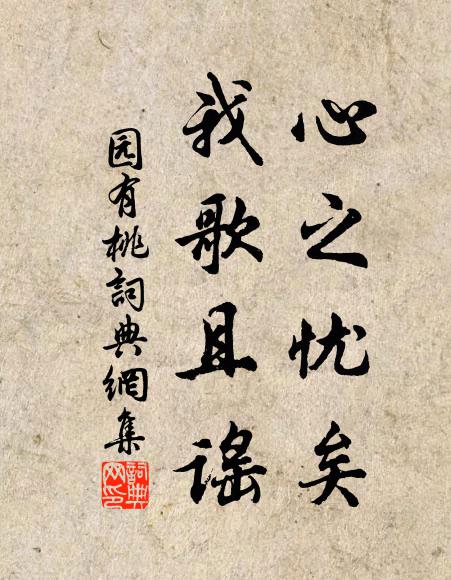 心之忧矣
我歌且谣
园有桃詞典網集
詞典網印